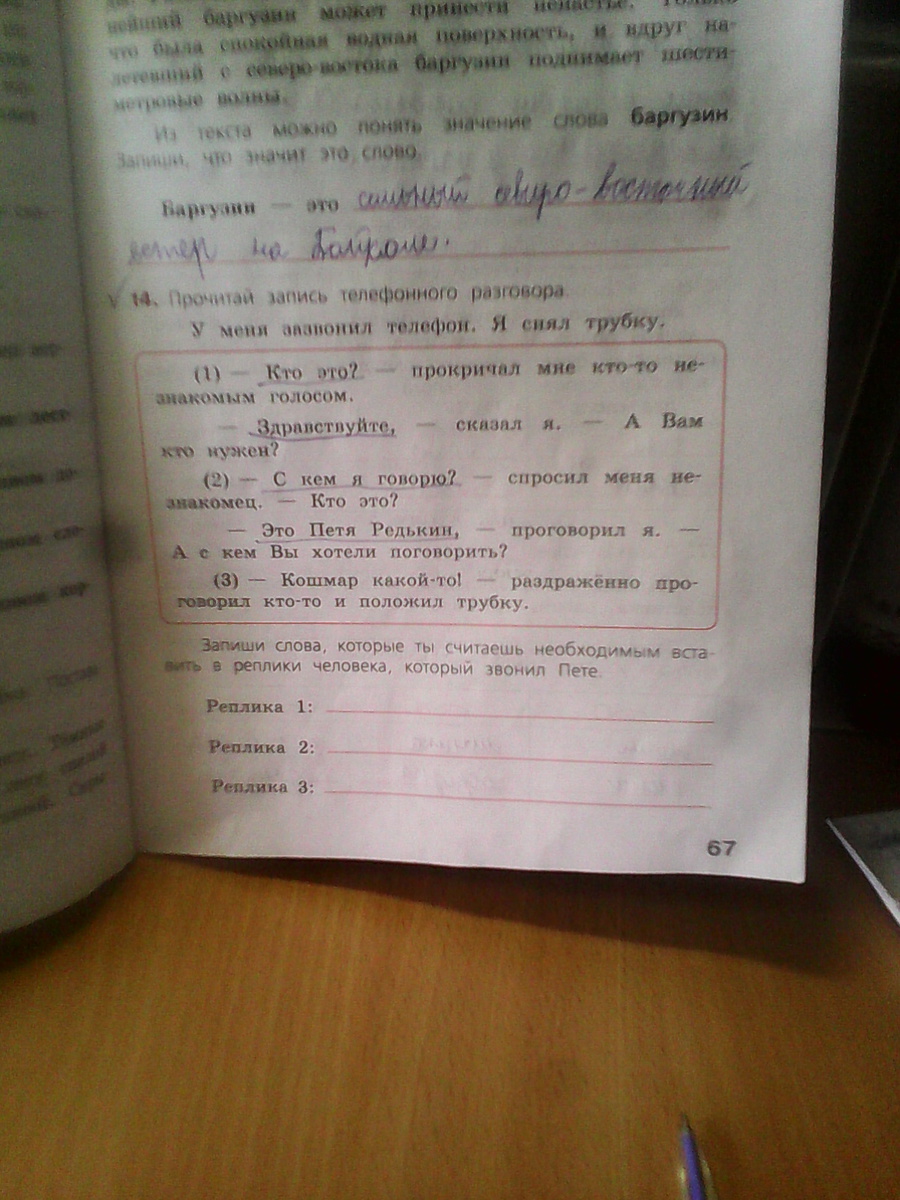 нейший баргузин может принести ненастье. Только
что была спокойная водная поверхность, и вдруг на-
летевший с северо-востока баргузин поднимает шести-
метровые волны.
Из текста можно понять значение слова баргузин.
Запиши, что значит это слово.
Баргузин — это сильный северо-восточный
ветер на Байкале.
14. Прочитай запись телефонного разговора.
У меня зазвонил телефон. Я снял трубку.
(1) — Кто это? — прокричал мне кто-то не-
знакомым голосом.
— Здравствуйте, — сказал я. — А Вам
кто нужен?
(2) — С кем я говорю? — спросил меня не-
знакомец. — Кто это?
— Это Петя Редькин, — проговорил я. —
А с кем Вы хотели поговорить?
(3) — Кошмар какой-то! — раздражённо про-
говорил кто-то и положил трубку.
Запиши слова, которые ты считаешь необходимым вста-
вить в реплики человека, который звонил Пете.
Реплика 1:
Реплика 2:
Реплика 3:
67